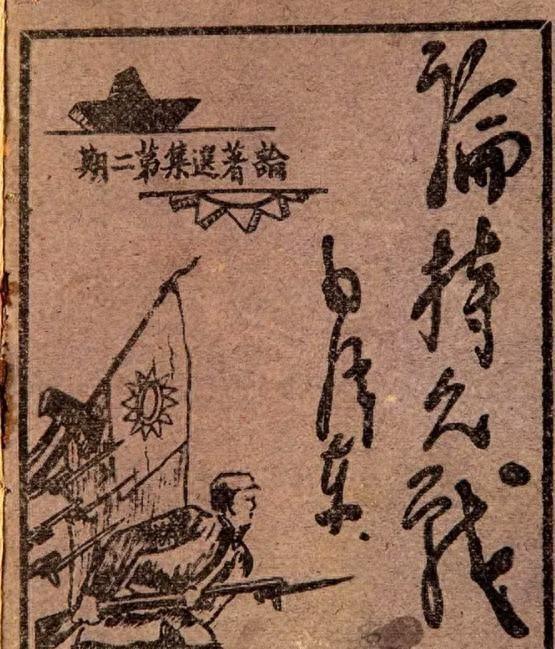 論持久戰
毛澤東
論著選集第二期